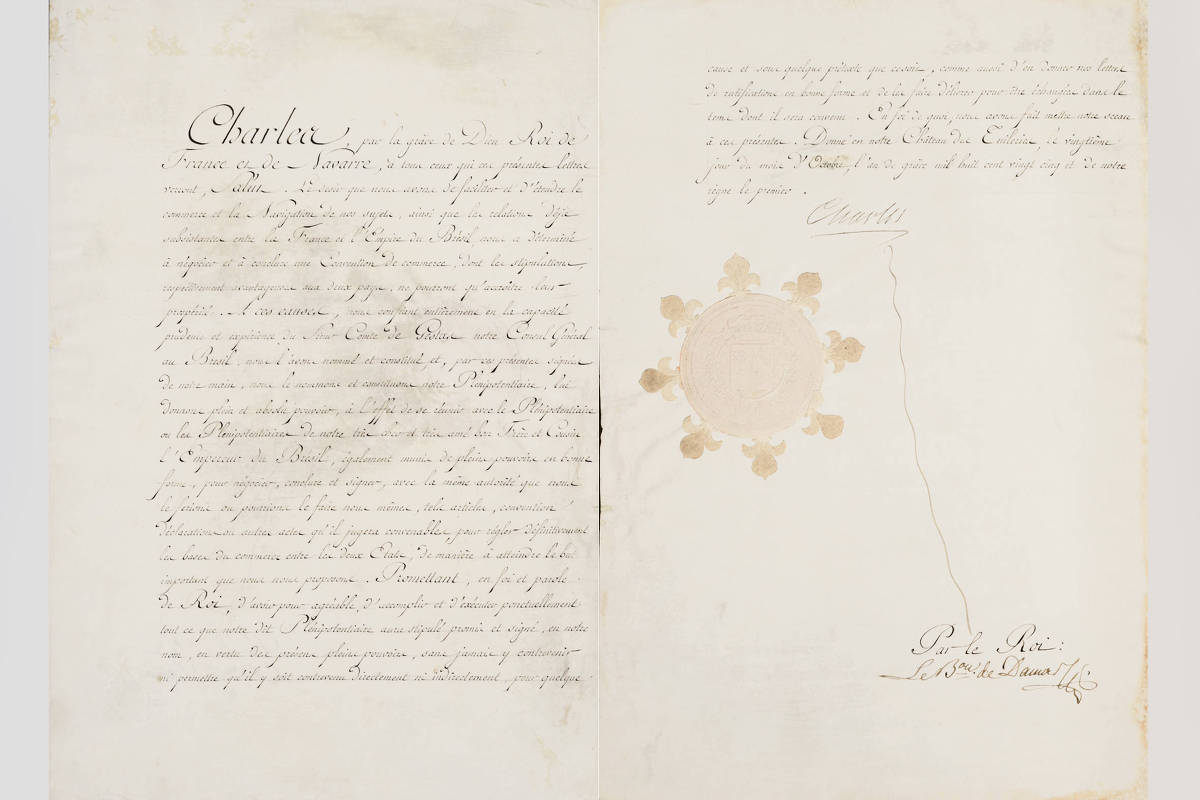 Charles, par la grâce de Dieu Roi de
France et de Navarre, à tous ceux qui ces présentes lettres
verront, Salut. Le desir que nous avons de faciliter et d'étendre le
commerce et la Navigation de nos sujets, ainsi que les relations déjà
subsistantes entre la France et l'Empire du Brésil nous a déterminé
à négocier et à conclure une Convention de commerce, dont les stipulations,
respectivement avantageuses aux deux pays, ne pourront qu'accroître leur
prospérité. A ces causes, nous confiant entièrement en la capacité
prudence et expérience du Sieur Comte de Gestas notre Consul Général
au Brésil, nous l'avons nommé et constitué, et, par ces présentes signées
de notre main, nous le nommons et constituons notre Plénipotentiaire, lui
donnons plein et absolu pouvoir, à l'effet de se réunir avec le Plénipotentiaire
ou les Plénipotentiaires de notre très cher et très amé bon Frère et Cousin
l'Empereur du Brésil, également munis de pleins pouvoirs en bonne
forme, pour négocier, conclure et signer, avec la même autorité que nous
le ferions ou pourrions le faire nous mêmes, tels articles, convention
déclarations ou autres actes qu'il jugera convenables, pour régler définitivement
les bases du commerce entre les deux Etats, de manière à atteindre le but
important que nous nous proposons. Promettant, en foi et parole
de Roi, d'avoir pour agréable, d'accomplir et d'exécuter ponctuellement
tout ce que notre dit Plénipotentiaire aura stipulé promis et signé, en notre
nom, en vertu des présens pleins pouvoirs, sans jamais y contrevenir
ni permettre qu'il y soit contrevenu directement ni indirectement, pour quelque
cause et sous quelque prétexte que ce soit, comme aussi d'en donner nos lettres
de ratification en bonne forme et de les faire délivrer pour être échangées dans le
tems dont il sera convenu. En foi de quoi, nous avons fait mettre notre sceau
à ces présentes. Donné en notre Château des Tuileries, le vingtième
jour du mois d'Octobre, l'an de grâce mil huit cent vingt cinq et de notre
règne le premier.
Charles
Par le Roi:
Le Bon. de Damas